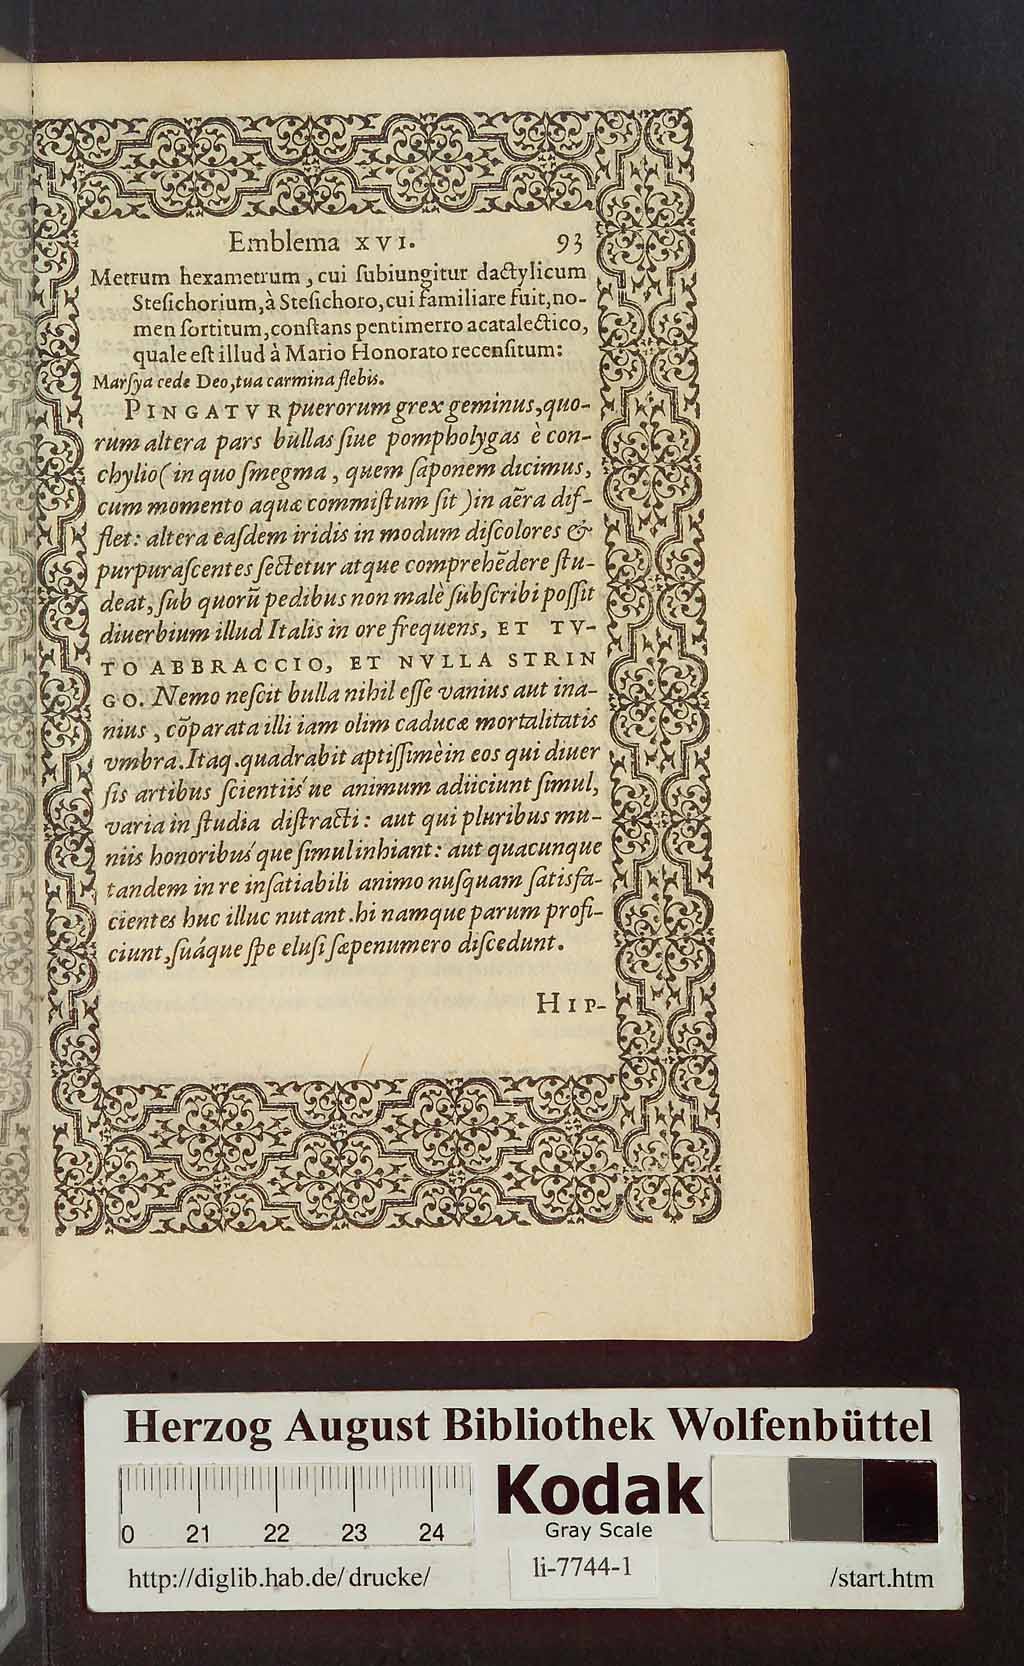 Emblema XVI. 93
Metrum hexametrum, cui ſubiungitur dactylicum
Steſichorium, à Steſichoro, cui familiare fuit, no-
men ſortitum, conſtans pentimerro acatalectico,
quale eſt illud à Mario Honorato recenſitum:
Marſya cede Deo, tua carmina flebis.
PINGATVR puerorum grex geminus, quo-
rum altera pars bullas ſiue pompholygas è con-
chylio (in quo ſmegma, quem ſaponem dicimus,
cum momento aquæ commiſtum ſit) in aëra dif-
flet: altera eaſdem iridis in modum diſcolores &
purpuraſcentes ſectetur atque comprehēdere ſtu-
deat, ſub quorū pedibus non malè ſubſcribi poſſit
diuerbium illud Italis in ore frequens, ET TV-
TO ABBRACCIO, ET NVLLA STRIN
GO. Nemo neſcit bulla nihil eſſe vanius aut ina-
nius, cōparata illi iam olim caducæ mortalitatis
vmbra. Itaq. quadrabit aptiſſimè in eos qui diuer
ſis artibus ſcientiiś ue animum adiiciunt ſimul,
varia in ſtudia diſtracti: aut qui pluribus mu-
niis honoribuś que ſimul inhiant: aut quacunque
tandem in re inſatiabili animo nuſquam ſatisfa-
cientes huc illuc nutant. hi namque parum profi-
ciunt, ſuáque ſpe eluſi ſæpenumero diſcedunt.
HIP-
Herzog August Bibliothek Wolfenbüttel
0 21 22 23 24
Kodak
Gray Scale
http://diglib.hab.de/drucke/ li-7744-1 /start.htm